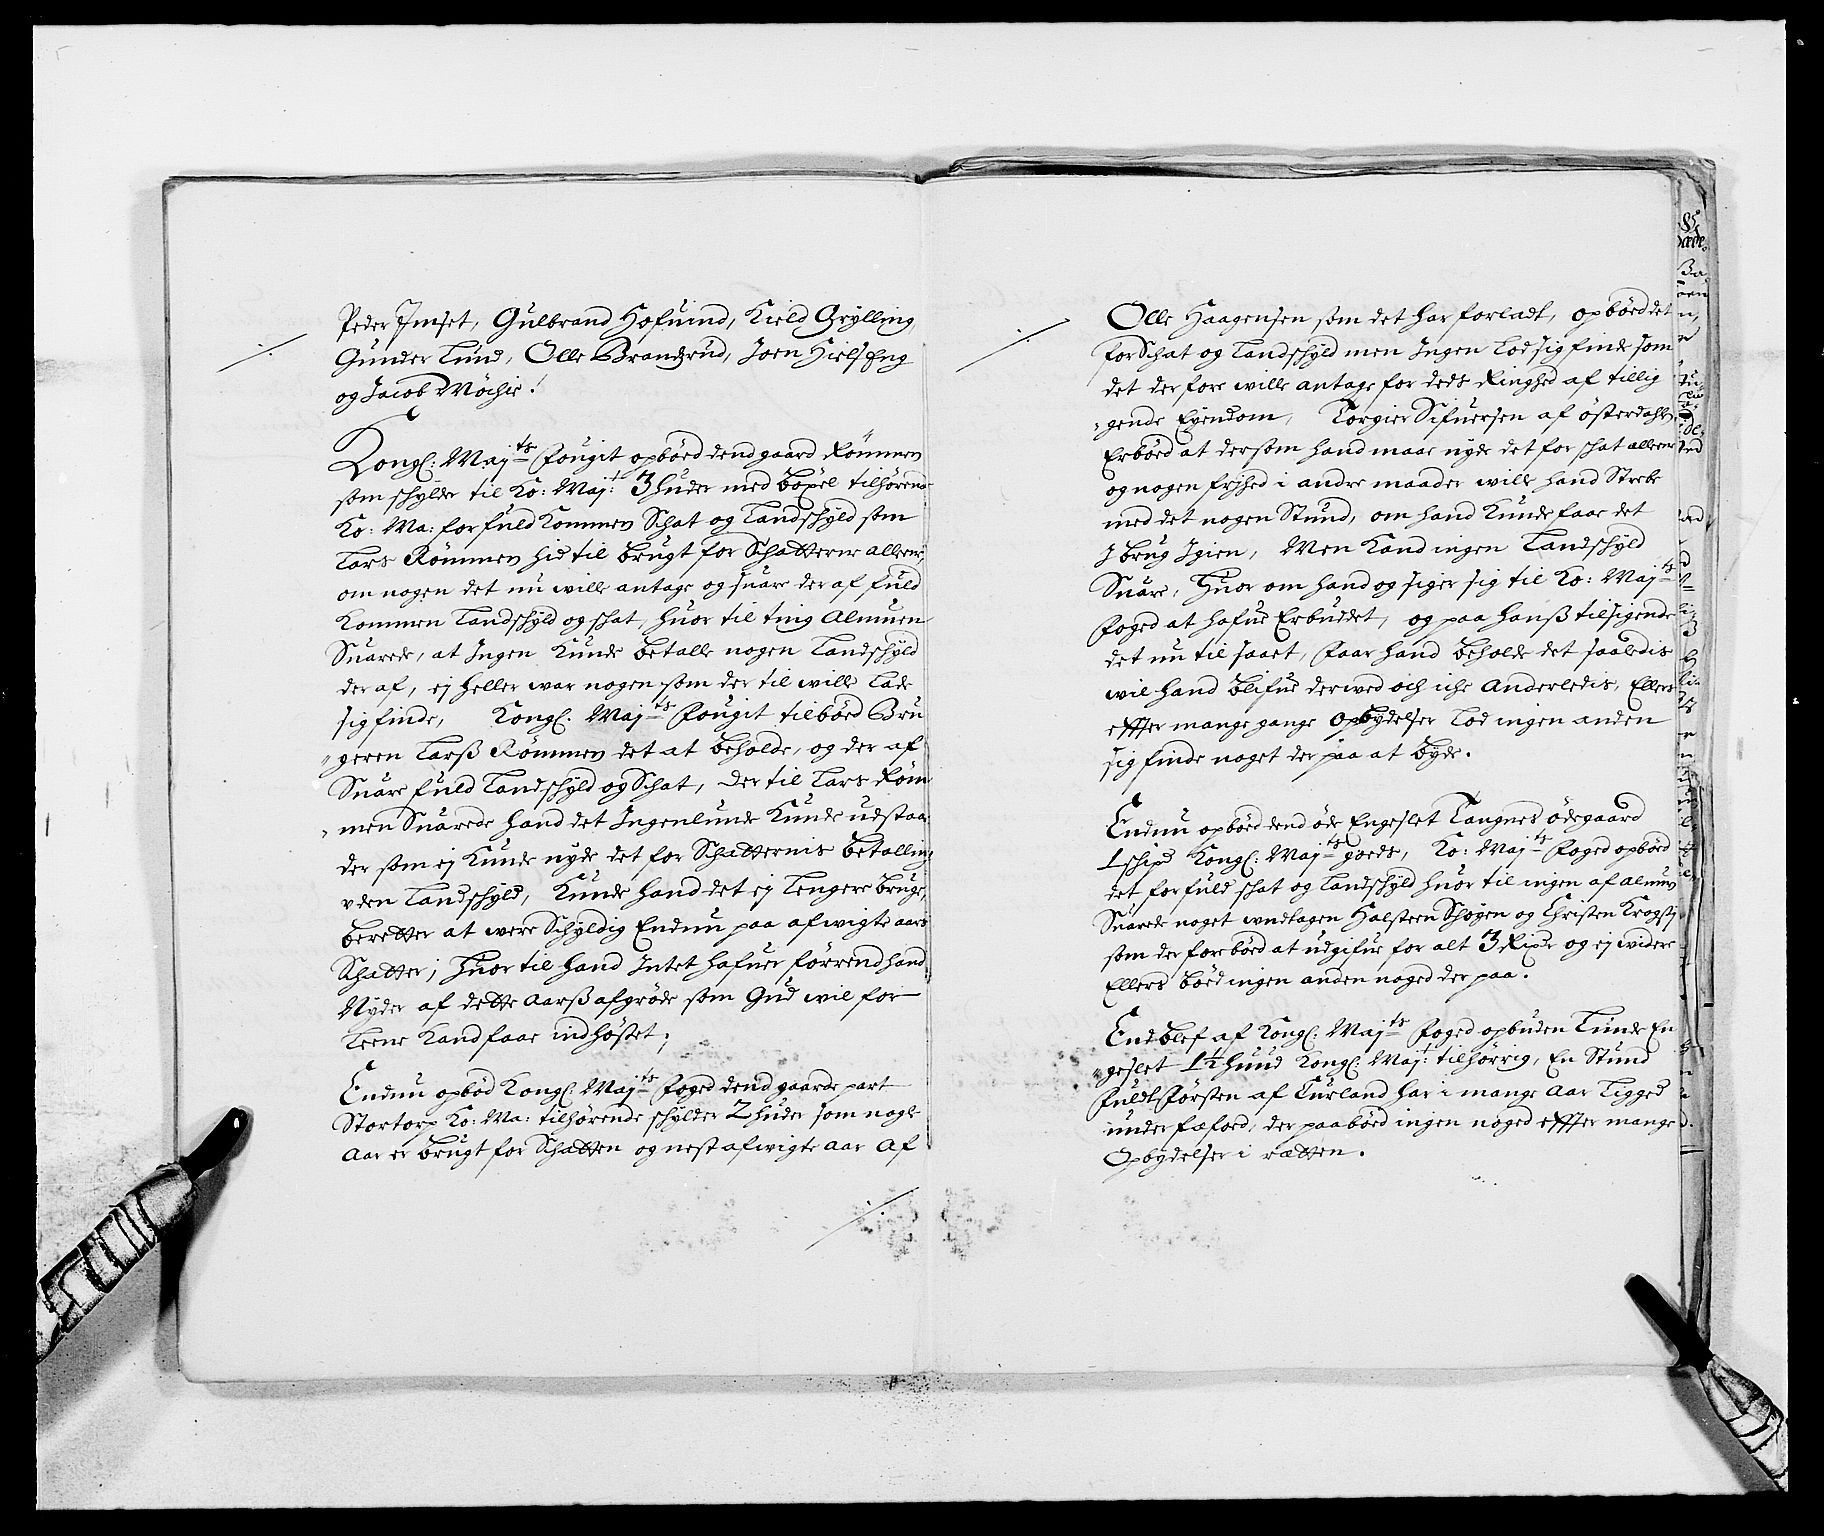 Peder Imset, Gulbrand Hofuind, Kield Grylling,
Gunder Lund, Olle Brandzrud, Joen Hielszeng
og Jacob Møchie!
Kongl: Maj.ts Fougit opbøed dend gaard Rømmen
som schylder til Ko: Maj:t 3 huder med böxel tilhørende
Ko: Ma: for fuld Kommen Schat og Landschyld som
Lars Rømmen hid til brugt for Schatterne alleene,
om nogen det nu wille antage og suare der af fuld
Kommen Landschyld og schat, huor til ting Almuen
Suarede, at Ingen Kunde betalle nogen Landschyld
der af, ej heller war nogen som der til wille lade
sig finde, Kongl. Maj.ts Fougit tilbøed Bru
geren Larß Rømmen det at beholde, og der af
Suare fuld Landschyld og Schat, der til Lars Røm
men Suarede hand det Ingenlunde Kunde udstaa,
der som ej Kunde nyde det for Schatternis betalling
vden Landschyld, Kunde hand det ej lengere bruge,
beretter at were Schyldig Endnu paa afwigte aars
Schatter, huor til hand Intet hafuer førrend hand
Nyder af dette aarß afgrøde som Gud wil for
leene Kand faae indhøstet;
Endnu opbød Kongl: Maj.ts Foged dend gaarde part
Stortorp Ko: Ma: tilhørende schylder 2 huder som nogle
aar er brugt for Schatten og nest afwigte aar af
Olle Haagensen som det har forladt, opbøed det
for Schat og Landschyld men Ingen lod sig finde som
det der fore wille antage for deds Ringhed af tillig
gende Eyendom, Torgier Sifuersen af østerdahlen
Erbød at dersom hand maae nyde det for schat alleene
og nogen frjhed i andre maader wille hand Strebe
med det nogen Stund, om hand Kunde faae det
J brug Jgien, Men Kand ingen Landschyld
Suare, huor om hand og siger sig til Ko: Maj.ts
Foged at hafue Erbuddet, og paa hanß tilsigende
det nu til saaet, faar hand beholde det saaledis
wil hand blifue derwed och iche anderledis, Ellers
effter mange gange opbydelser lod ingen anden
sig finde noget der paa at byde.
Endnu opbøed dend øde Engeslet Tangnes ødegaard
1 schipd Kongl: Maj.ts goeds, Ko: Maj.ts Foged opbød
det for fuld schat og landschyld huor til ingen af almuen
Suarede noget vndtagen Halsteen Schøyen og Christen Krogstj
som der fore bøed at udgifue for alt 3 Rixdr og ej widere
Ellers bøed ingen anden noged der paa.
End blef af Kongl: Maj.ts Foged opbuden Lunde En
geslet 1½ huud Kongl: Maj:t tilhørrig, En Stund
fuldt Førsten af Turland har i mange aar ligged
under fæfoed, der paa bøed ingen noged effter mange
Opbydelser i rætten.